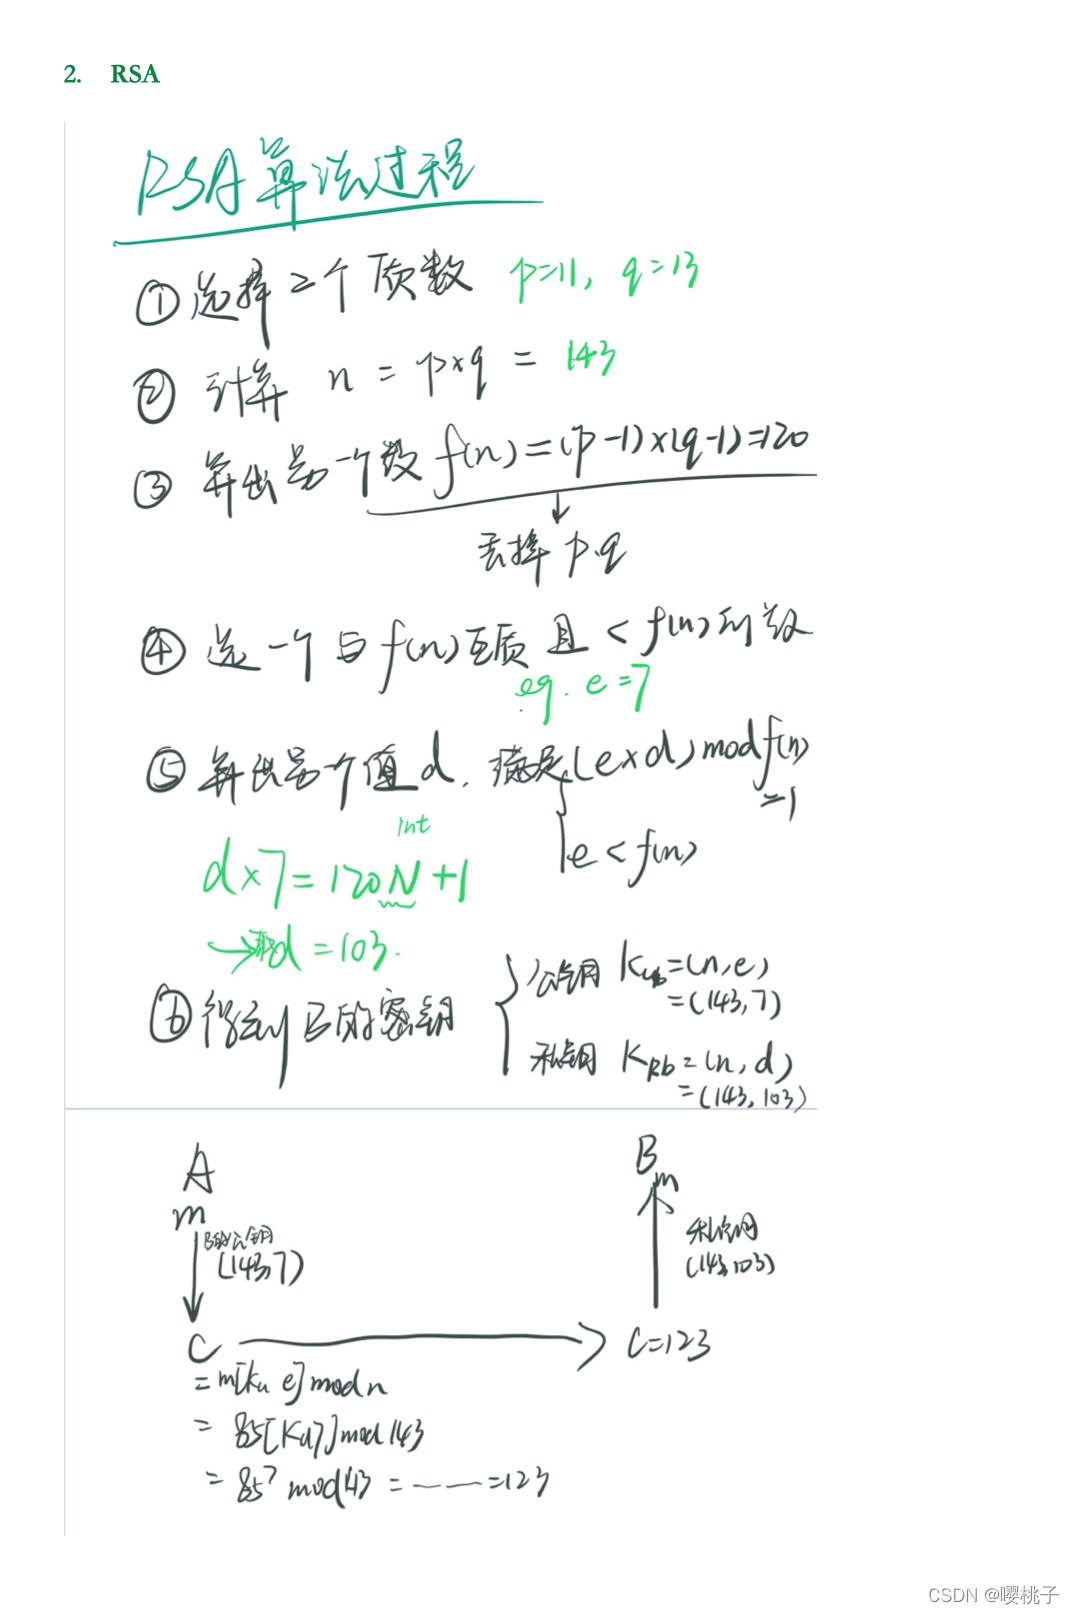 2. RSA
RSA算法过程
①选择二个质数 p=11, q=13
② 计算 n = p×q = 143
③ 算出另一个数 f(n)=(p-1)×(q-1)=120
丢掉 p.q
④ 选一个与f(n)互质且<f(n)的数
eg. e=7
⑤ 算出另个值d. 满足(e×d)mod f(n)
=1
int
e < f(n)
d×7=120N+1
→求d=103.
⑥得到B的密钥
公钥 Kub=(n,e)
=(143,7)
私钥 KRb=(n,d)
=(143,103)
A
m
B的公钥
(143,7)
B
m
私钥
(143,103)
C
C=123
= m[ku e]mod n
= 85[Ku7]mod 143
= 85⁷ mod143 = —— =123
CSDN @嘤桃子